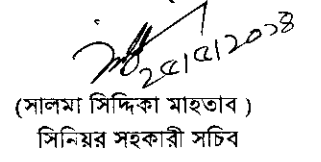 ২৫/৫/২০১৪
(সালমা সিদ্দিকা মাহতাব )
সিনিয়র সহকারী সচিব